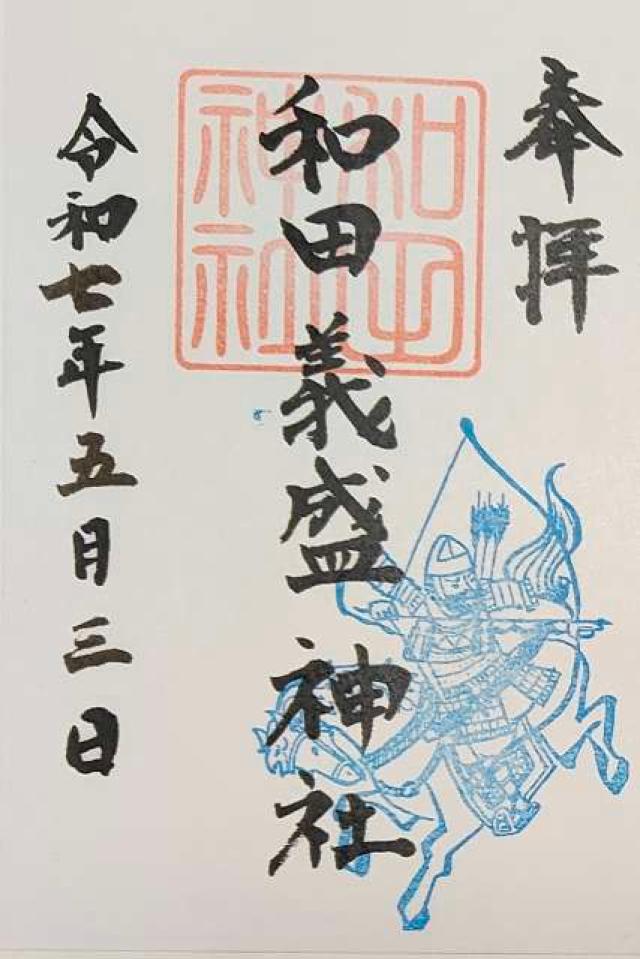 奉拝
和田神社
和田義盛神社
令和七年五月三日